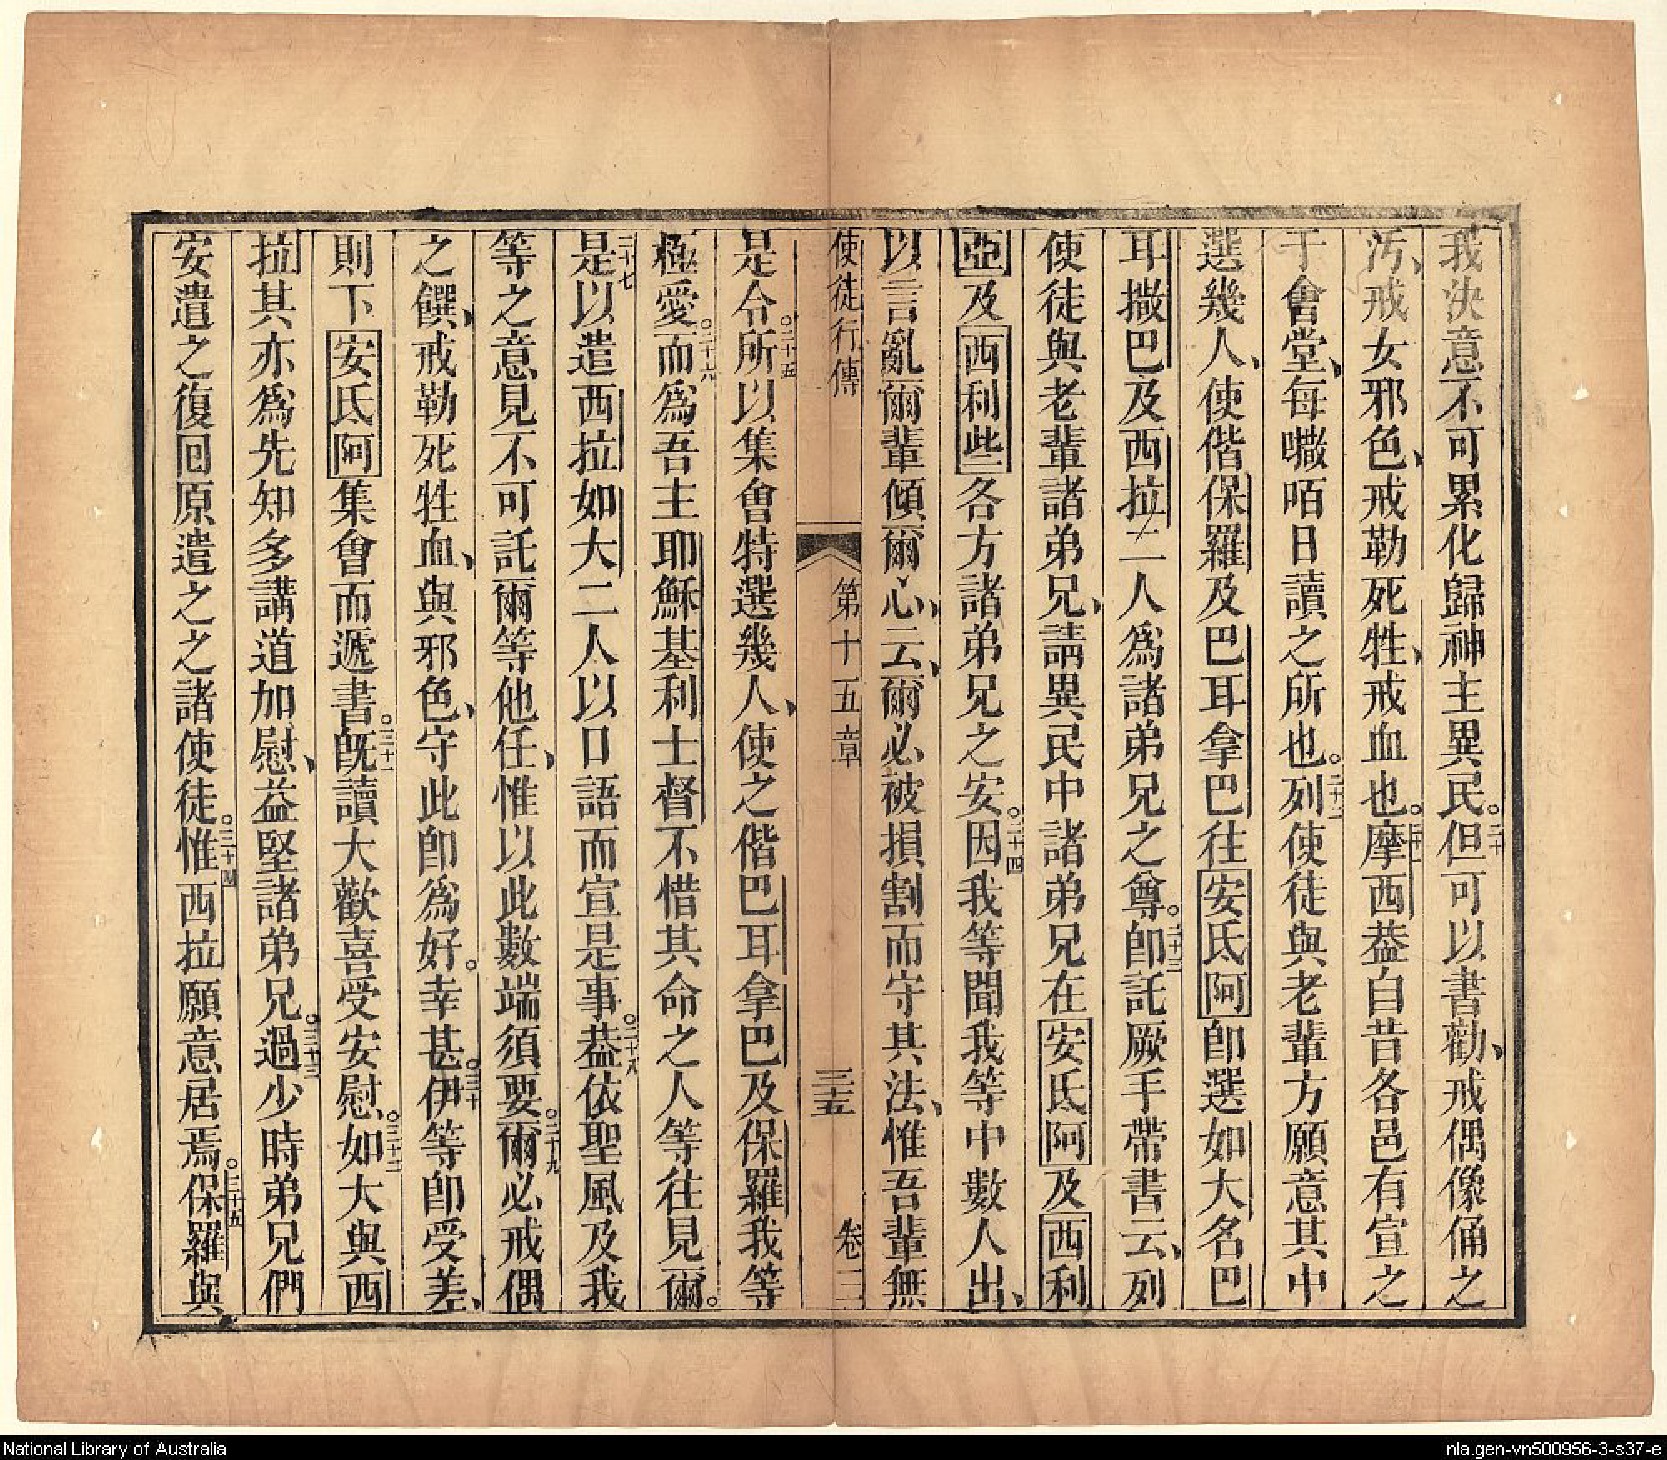 我決意不可累化歸神主異民。二十但可以書勸、戒偶像俑之
汚、戒女邪色、戒勒死牲、戒血也。二十一摩西葢自昔各邑有宣之
于會堂、每嘰咟日讀之所也。二十二列使徒與老輩方願意其中
選幾人、使偕保羅及巴耳拿巴往安氐阿卽選如大名巴
耳撒巴及西拉二人爲諸弟兄之尊。二十三卽託厥手帶書云、列
使徒與老輩諸弟兄、請異民中諸弟兄在安氐阿及西利
亞及西利些各方諸弟兄之安。二十四因我等聞我等中數人出、
以言亂爾輩傾爾心、云、爾必被損割而守其法、惟吾輩無
使徒行傳 第十五章 三十五 卷三
是令。二十五所以集會特選幾人、使之偕巴耳拿巴及保羅我等
極愛。二十六而爲吾主耶穌基利士督不惜其命之人等往見爾。
二十七是以遣西拉如大二人以口語而宣是事。二十八葢依聖風及我
等之意見不可託爾等他任、惟以此數端須要。二十九爾必戒偶
之饌、戒勒死牲血、與邪色、守此卽爲好。幸甚。三十伊等卽受差、
則下安氐阿集會而遞書。三十一旣讀大歡喜受安慰。三十二如大與西
拉其亦爲先知多講道加慰、益堅諸弟兄。三十三過少時弟兄們
安遣之復回原遣之之諸使徒。三十四惟西拉願意居焉。三十五保羅與
National Library of Australia
nla.gen-vn500956-3-s37-e